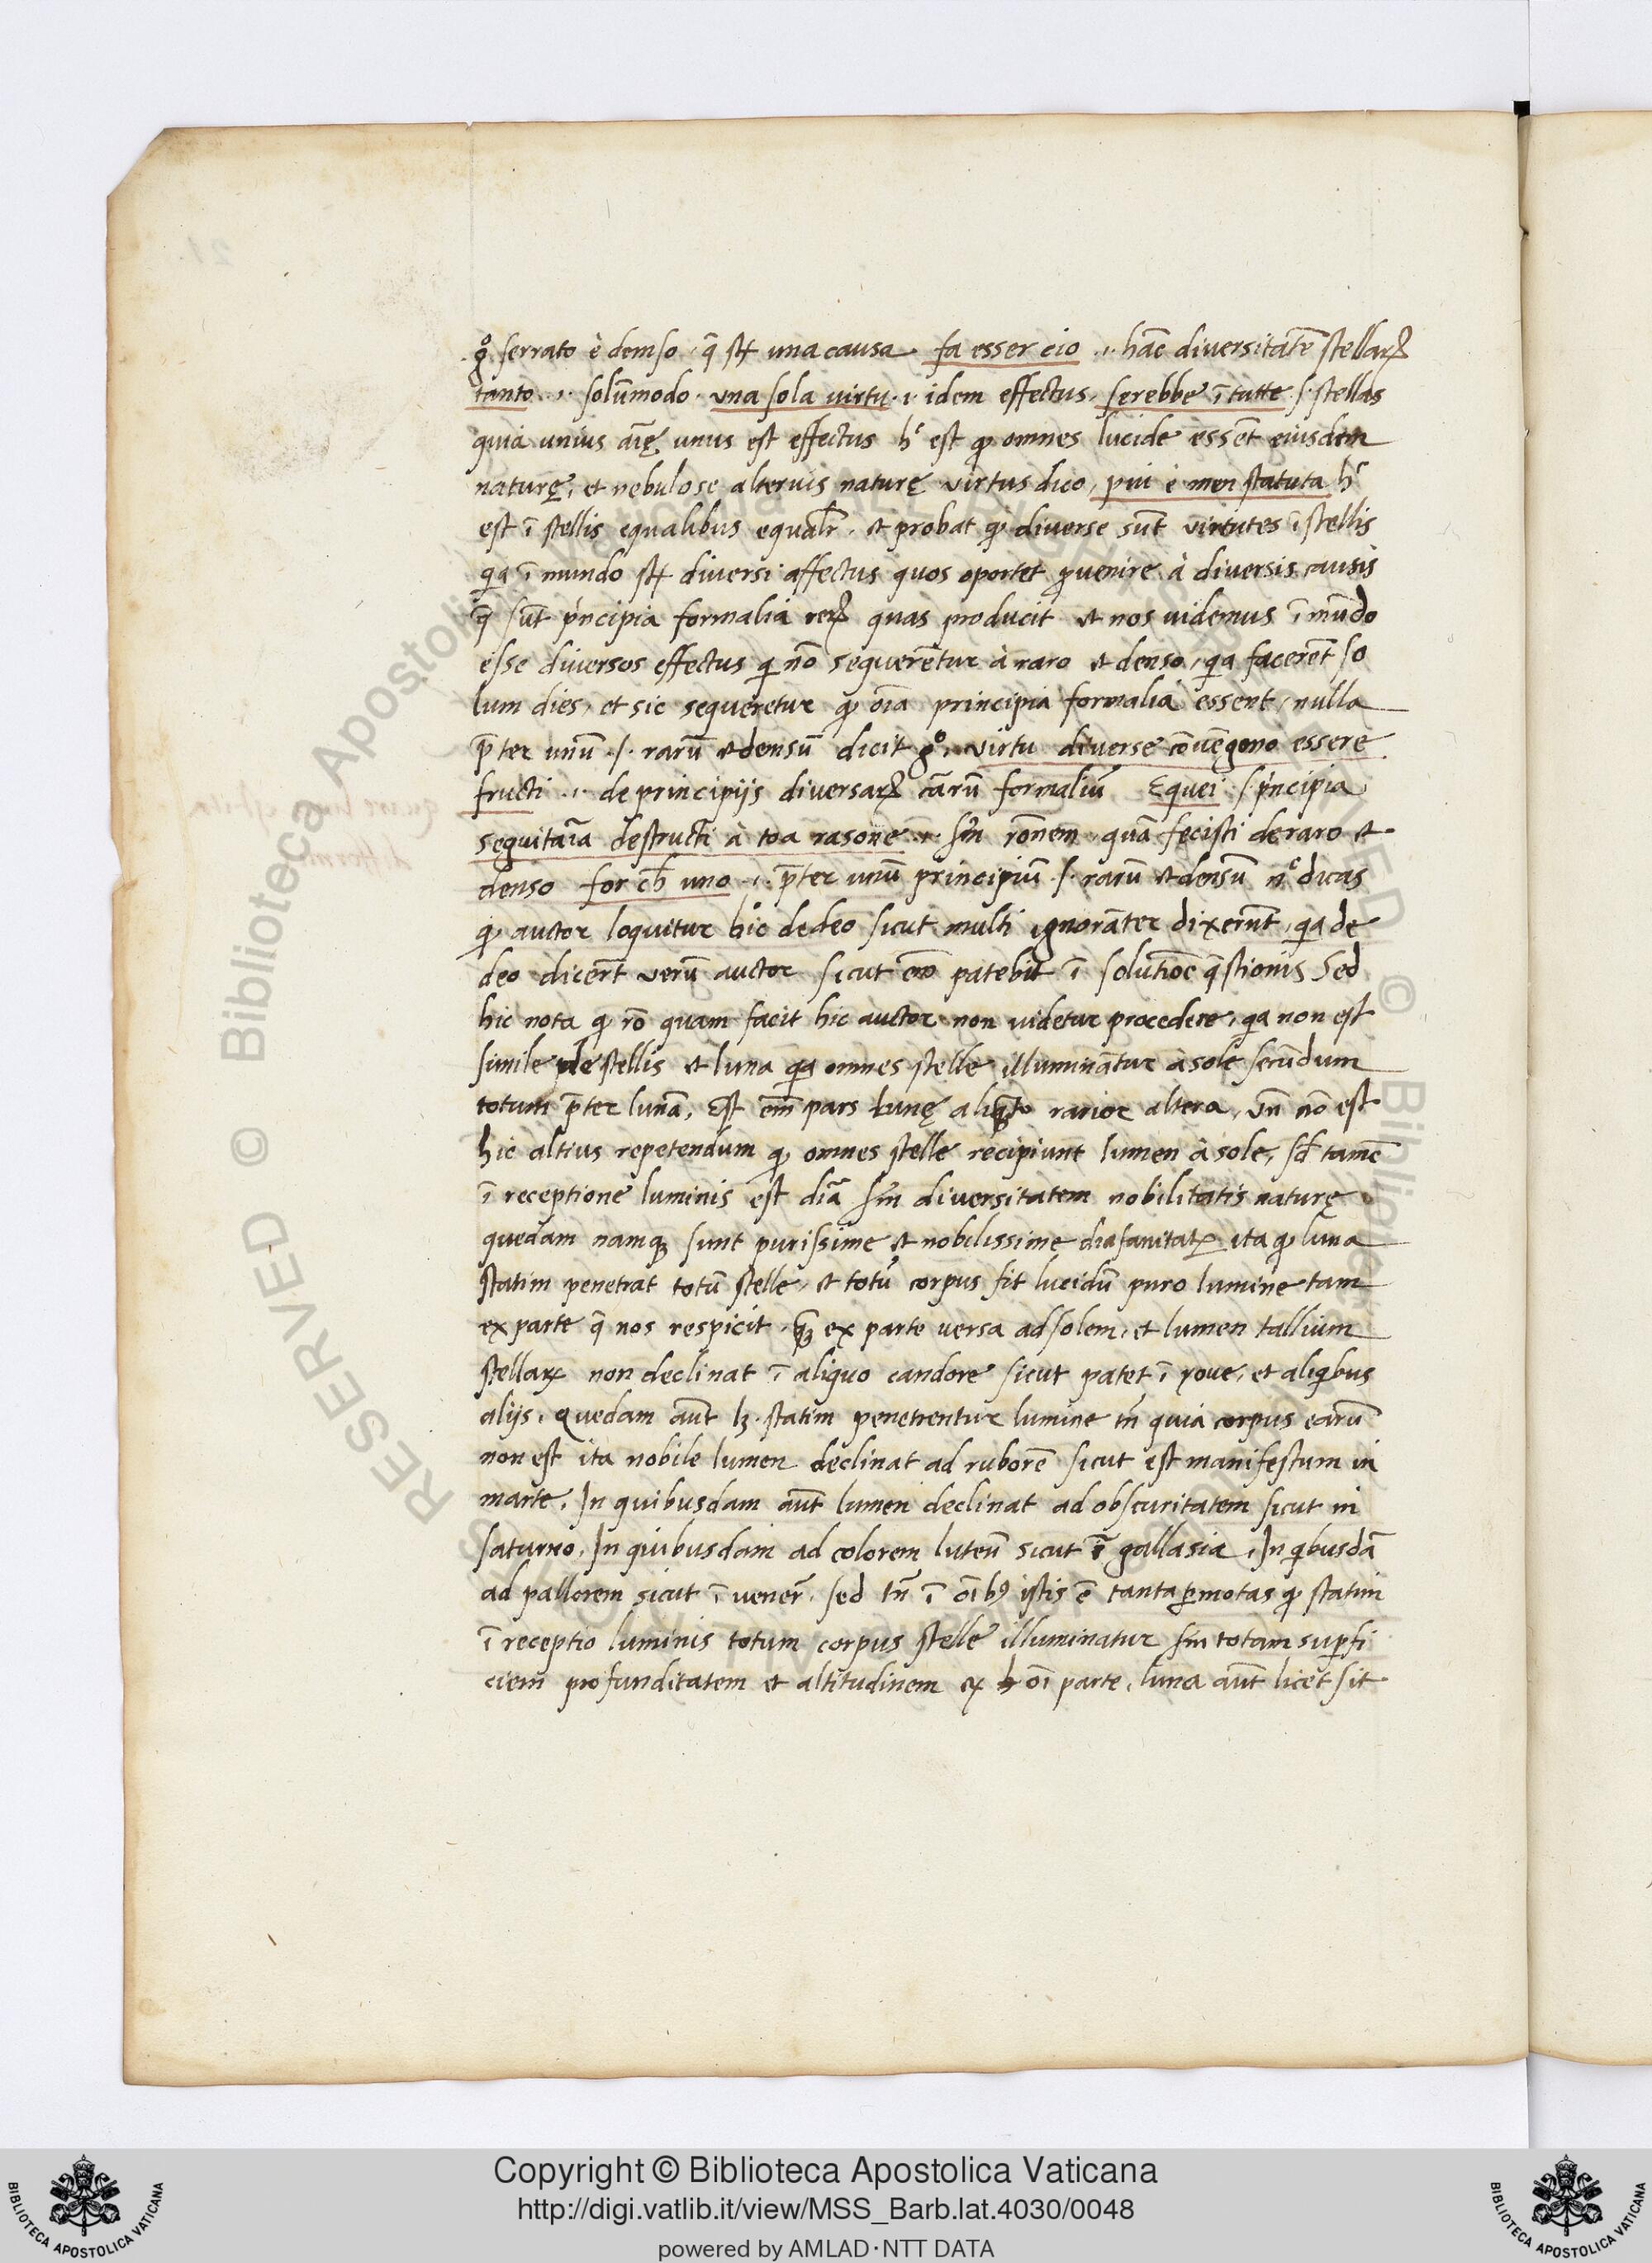 g̊. serrato è denso · q̄ sūt una causa fa esser cio .ı. hāc diversitatē stellaꝝ
tanto .ı. solūmodo · una sola virtu .ı. idem effectus, serebbe ī tutte .s. stellas
quia unius aīę unus est effectus h̄ est ꝙ omnes lucide essēt eiusdem
naturę, et nebulose alterius naturę virtus dico, piu è men statuta h̄
est ī stellis equalibus equalr̄ . et probat ꝙ diverse sūt virtutes ī stellis
qa ī mundo sūt diversi affectus quos oportet ꝓvenire à diversis causis
q̄ sūt pncipia formalia reꝝ quas producit et nos videmus ī mūdo
esse diversos effectus qi nō sequerētur à raro et denso, qa facerēt so
lum dies, et sic sequeretur ꝙ oīa principia formalia essent, nulla
p̄ter unū .s. rarū et densū dicit g̊. virtu diverse cōuēgono essere
fructi .ı. de principijs diversaꝝ cārū formaliū Equei .s. pncipia
seguitaīa destructi à toa rasone .ı. sm̄ rōnem quā fecisti de raro et
denso for ch̄ uno .ı. p̄ter unū principiū .s. rarū et densū nͨ dicas
ꝙ auctor loquitur hic de deo sicut multi ignorāter dixerūt, qa de
deo dicerēt verū auctor sicut em̄ patebit ī solutiōe q̄stionis Sed
hic nota ꝙ rō quam facit hic auctor non videtur procedere, qa non est
simile de stellis et luna qa omnes stelle illuminātur à sole secūdum
totum p̄ter lunā, Est em̄ pars Lunę aliq̄to rarior altera, un̄ nō est
hic altius repetendum ꝙ omnes stelle recipiunt lumen à sole, sd̄ tamē
ī receptione luminis est dīa sm̄ diversitatem nobilitatis naturę
quedam namqꝫ sunt purissime et nobilissime diafanitatꝭ ita ꝙ luna
statim penetrat totū stelle, et totū corpus fit lucidū puro lumine tam
ex parte q̄ nos respicit, qꝫ ex parte versa ad solem, et lumen tallium
stellaꝝ non declinat ī aliquo candore sicut patet ī yove, et aliqibus
alijs, quedam aūt lꝫ statim penetrentur lumine tn̄ quia corpus earū
non est ita nobile lumen declinat ad ruborē sicut est manifestum in
marte, In quibusdam aūt lumen declinat ad obscuritatem sicut in
saturno, In quibusdam ad colorem luteū sicut ī gallasia, In qibusdā
ad pallorem sicut ī vener̄, sed tn̄ ī oībꝫ istis ē tanta ꝑmotas ꝙ statim
ī receptio luminis totum corpus stelle illuminatur sm̄ totam supfi
ciem profunditatem et altitudinem ex oī parte, luna aūt licet sit
Copyright © Biblioteca Apostolica Vaticana
http://digi.vatlib.it/view/MSS_Barb.lat.4030/0048
powered by AMLAD·NTT DATA